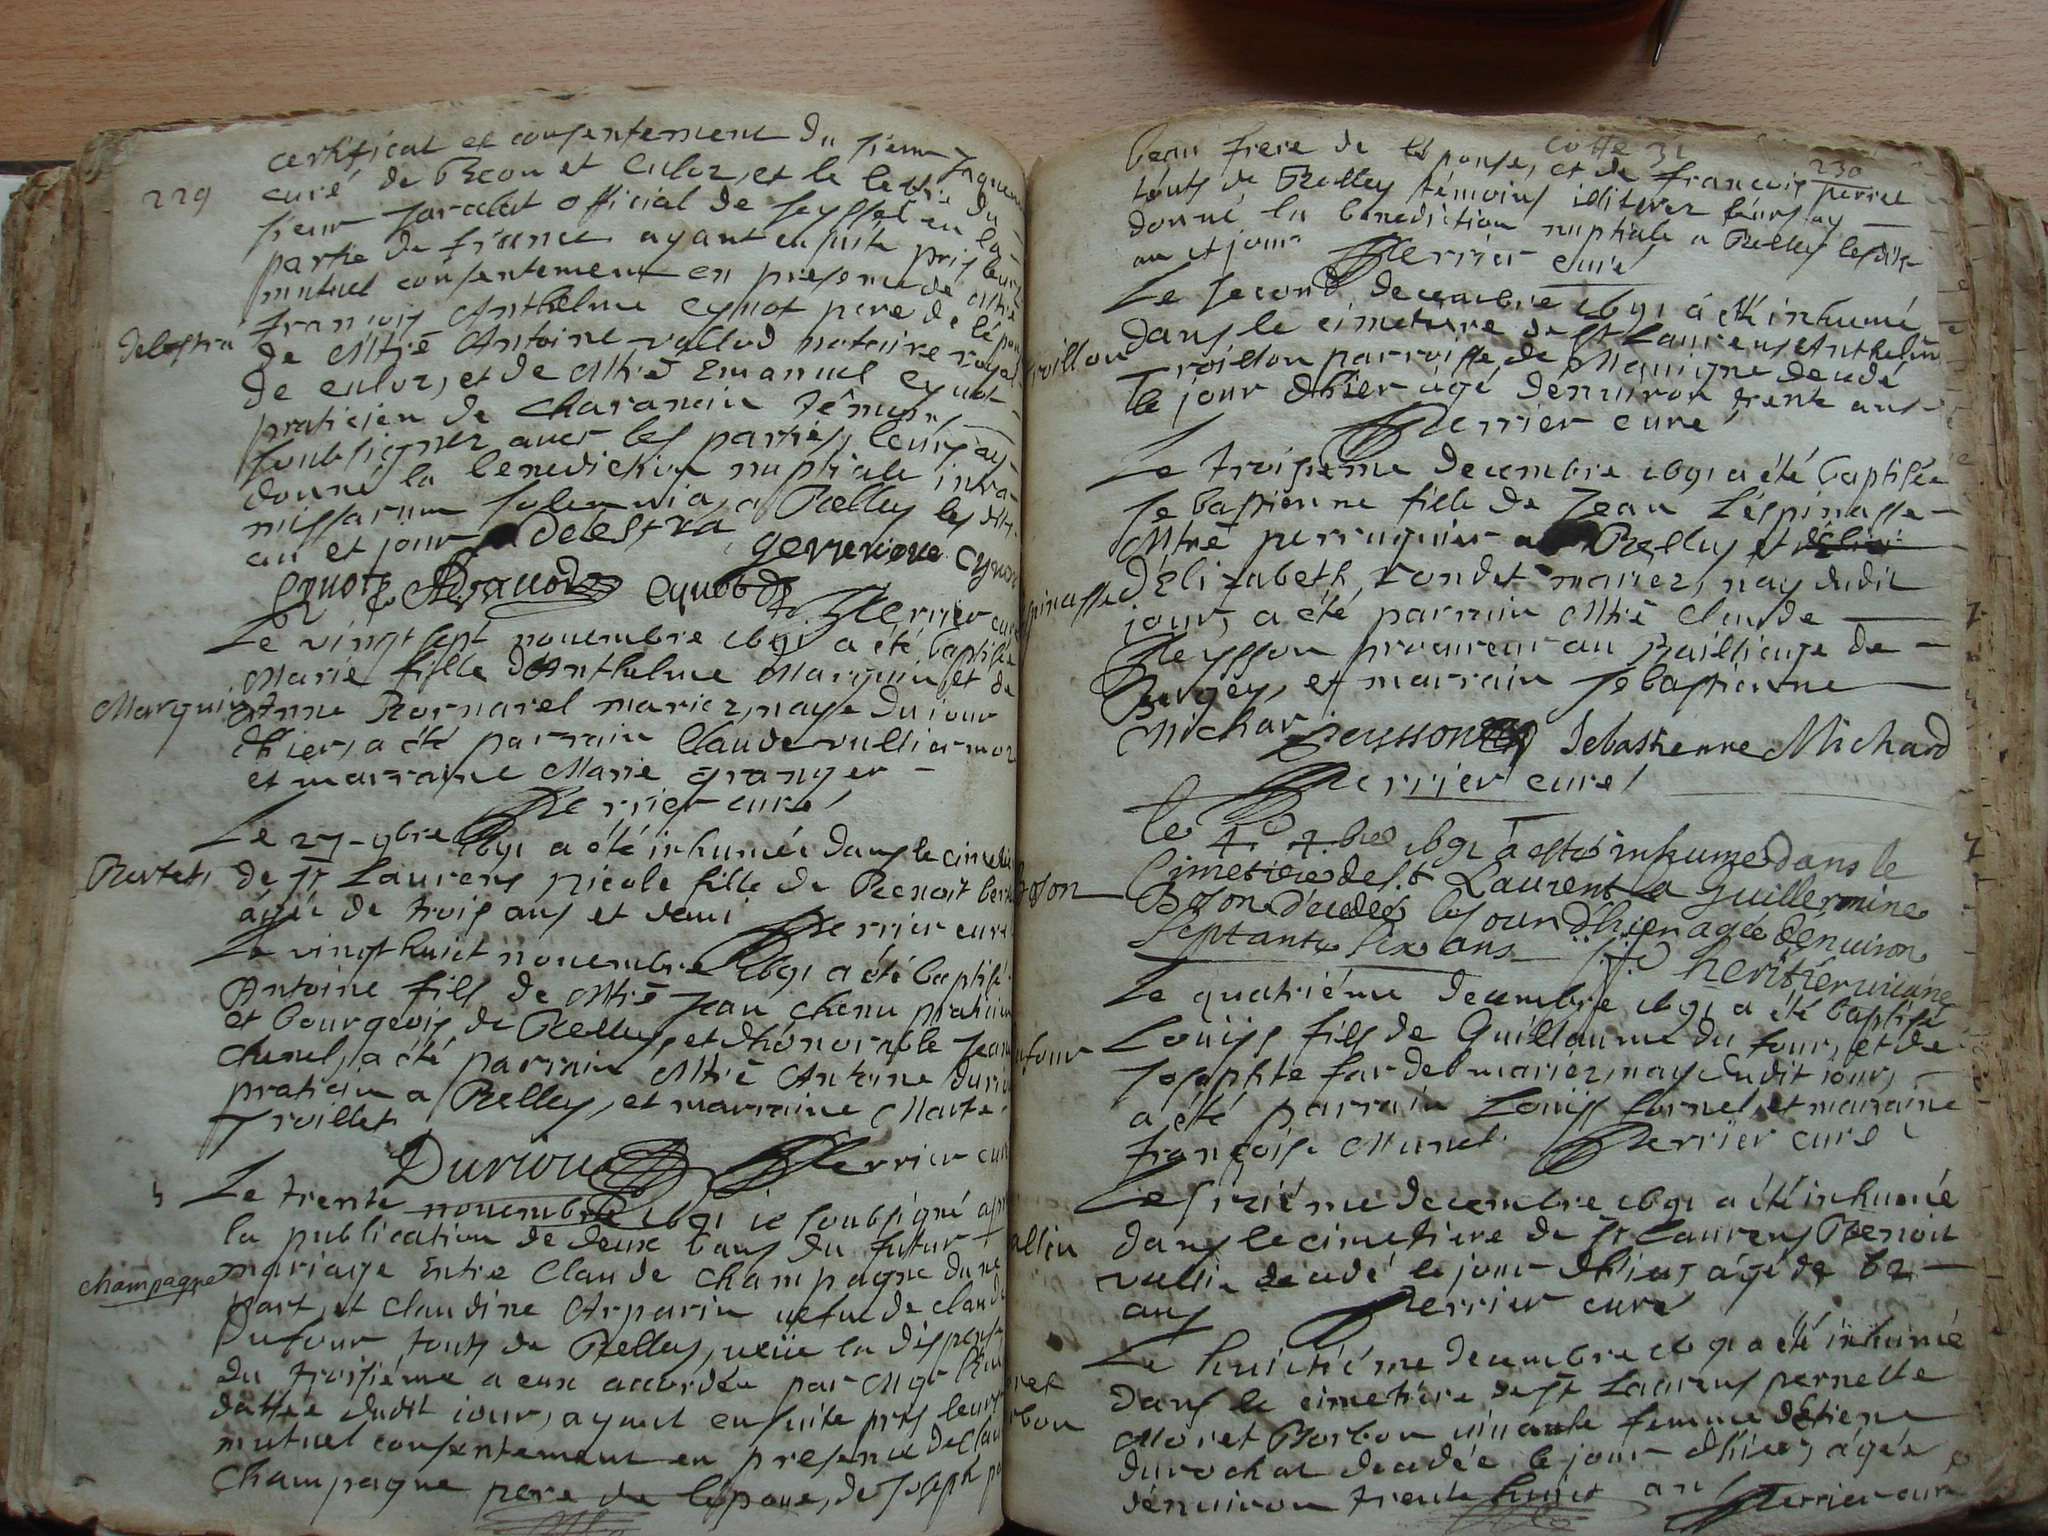 229
certificat et consentement du sieur
curé de Beon et Culoz, et le lettre du
sieur official de Seyssel en la
partie de france ayant ensuite pris leur
mutuel consentement en presence de Mtre
françois Anthelme Cynot pere de lépouse
Delestra
de Mtre Antoine vallod notaire royal
de culoz, et de Mtre Emanuel Cynot
praticien de charancin témoins
soubsignez avec les parties, leurs ay
donné la benediction nuptiale intra
missarum solemnia, a Belley les dits
an et jour Delestra genevieve Cynot
Cynot Cynod Perrier curé
Le vingt sept novembre 1691 a été baptisée
Marie fille d'Anthelme Marquin et de
Marquin
Anne Bornarel mariez, naye du jour
dhier, a été parrain Claude vulliermoz
et marraine Marie granger
Perrier curé
Le 27 9bre 1691 a été inhumée dans le cimetiere
Bertet
de St Laurens nicole fille de Benoit bertet
agée de trois ans et demi Perrier curé
Le vingt huit novembre 1691 a été baptisé
Antoine fils de Mtre Jean chenu praticien
et bourgeois de Belley, et dhonorable Jeanne
chenel, a été parrain Mtre Antoine Duriou
praticien a Belley, et marraine Marte
Troillet
Duriou Perrier curé
Le trente novembre 1691 ie soubsigné apres
la publication de deux bans du futur
mariage Entre Claude champagne dune
champagne
part, et claudine Arparin vefve de claude
Dufour touts de Belley, veüe la dispense
du troisiéme a eux accordée par Mgr
dattée dudit iour, ayant ensuite pris leur
mutuel consentement en presence de claude
Champagne pere de lepoux, de Joseph
cotte 31
230
beau frere de lépouse, et de françois perret
touts de Belley témoins illiterez leurs ay
donné la benediction nuptiale a Belley lesdits
an et jour Perrier curé
Le second decembre 1691 a été inhumé
dans le cimetiere de St Laurens Anthelme
Troillon parroisse de Magnigne decedé
le jour dhier agé denviron trente ans
Perrier curé
Le troisieme decembre 1691 a été baptisée
sebastienne fille de Jean Léspinasse
Mtre perruquier a Belley et
d'Elizabeth rondet mariez, nay dudit
jour, a été parrain Mtre claude
Peysson procureur au Bailliage de
Bugey, et marrain sebastienne
Michar Peysson Sebastienne Michard
Perrier curé
Le 4e Xbre 1691 a esté inhumée dans le
Cimetiere de St Laurent la Guillermine
Bozon décedée le jour d'hier agée denviron
septante six ans héritier vicaire
Le quatriéme decembre 1691 a été baptisé
Louiss fils de Guillaume du four, et de
Josephte fardel mariez, nay dudit iour,
a été parrain Louiss Cornel, et maraine
françoise Munet Perrier curé
Le sixiéme decembre 1691 a été inhumé
dans le cimetiere de St Laurens Benoit
vullin decedé le jour dhier, agé de 62
ans Perrier curé
Le huictiéme decembre 1691 a été inhumée
dans le cimetiere de St Laurens pernette
Moret Borbon vivante femme dEtiene
durochat decedée le jour dhier, agée
dénviron trente huict ans Perrier curé